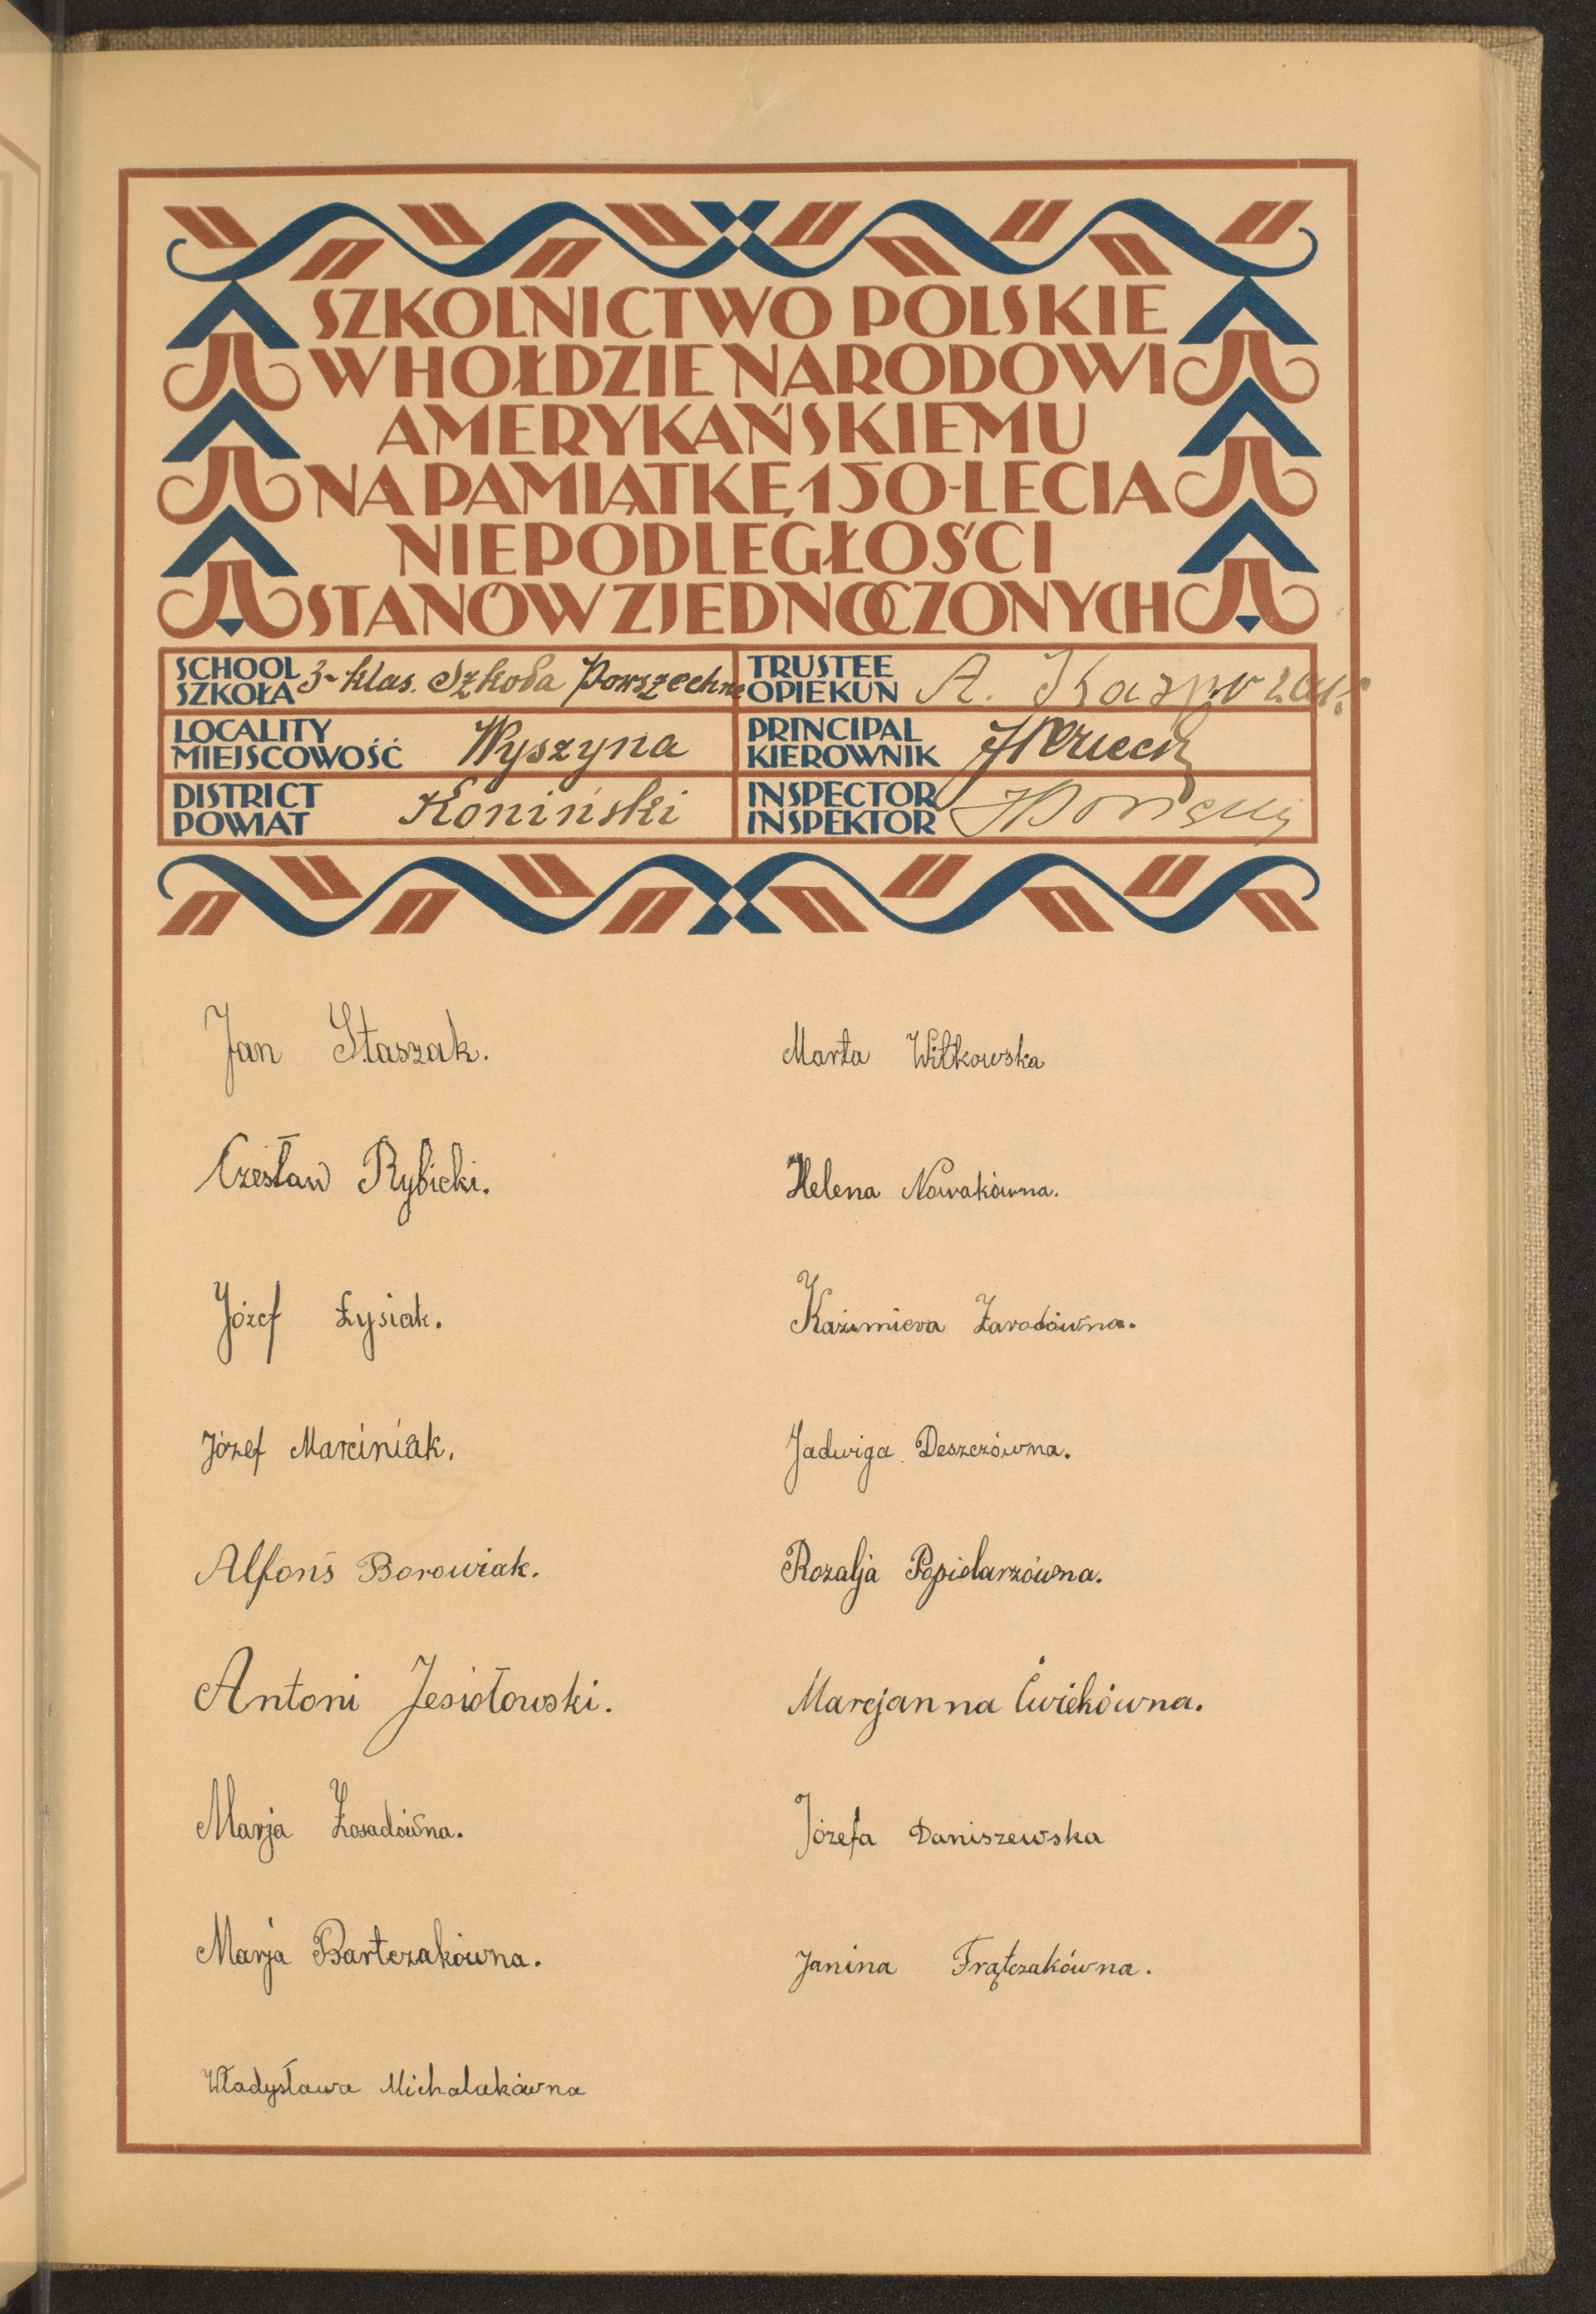 SZKOLNICTWO POLSKIE
W HOŁDZIE NARODOWI
AMERYKAŃSKIEMU
NA PAMIĄTKĘ 150-LECIA
NIEPODLEGŁOŚCI
STANÓW ZJEDNOCZONYCH
SCHOOL
SZKOŁA 3-klas. Szkoła Powszechna
TRUSTEE
OPIEKUN A.
LOCALITY
MIEJSCOWOŚĆ Wyszyna
PRINCIPAL
KIEROWNIK
DISTRICT
POWIAT Koniński
INSPECTOR
INSPEKTOR
Jan Staszak.
Czesław Rybicki.
Józef Łysiak.
Józef Marciniak.
Alfons Borowiak.
Antoni Jesiołowski.
Marja
Marja Bartczakówna.
Władysława Michalakówna
Marta Witkowska
Helena Nowakówna.
Kazimiera
Jadwiga Deszczówna.
Rozalja Popielarzówna.
Marcjanna Ćwiekówna.
Józefa Daniszewska
Janina Frątczakówna.